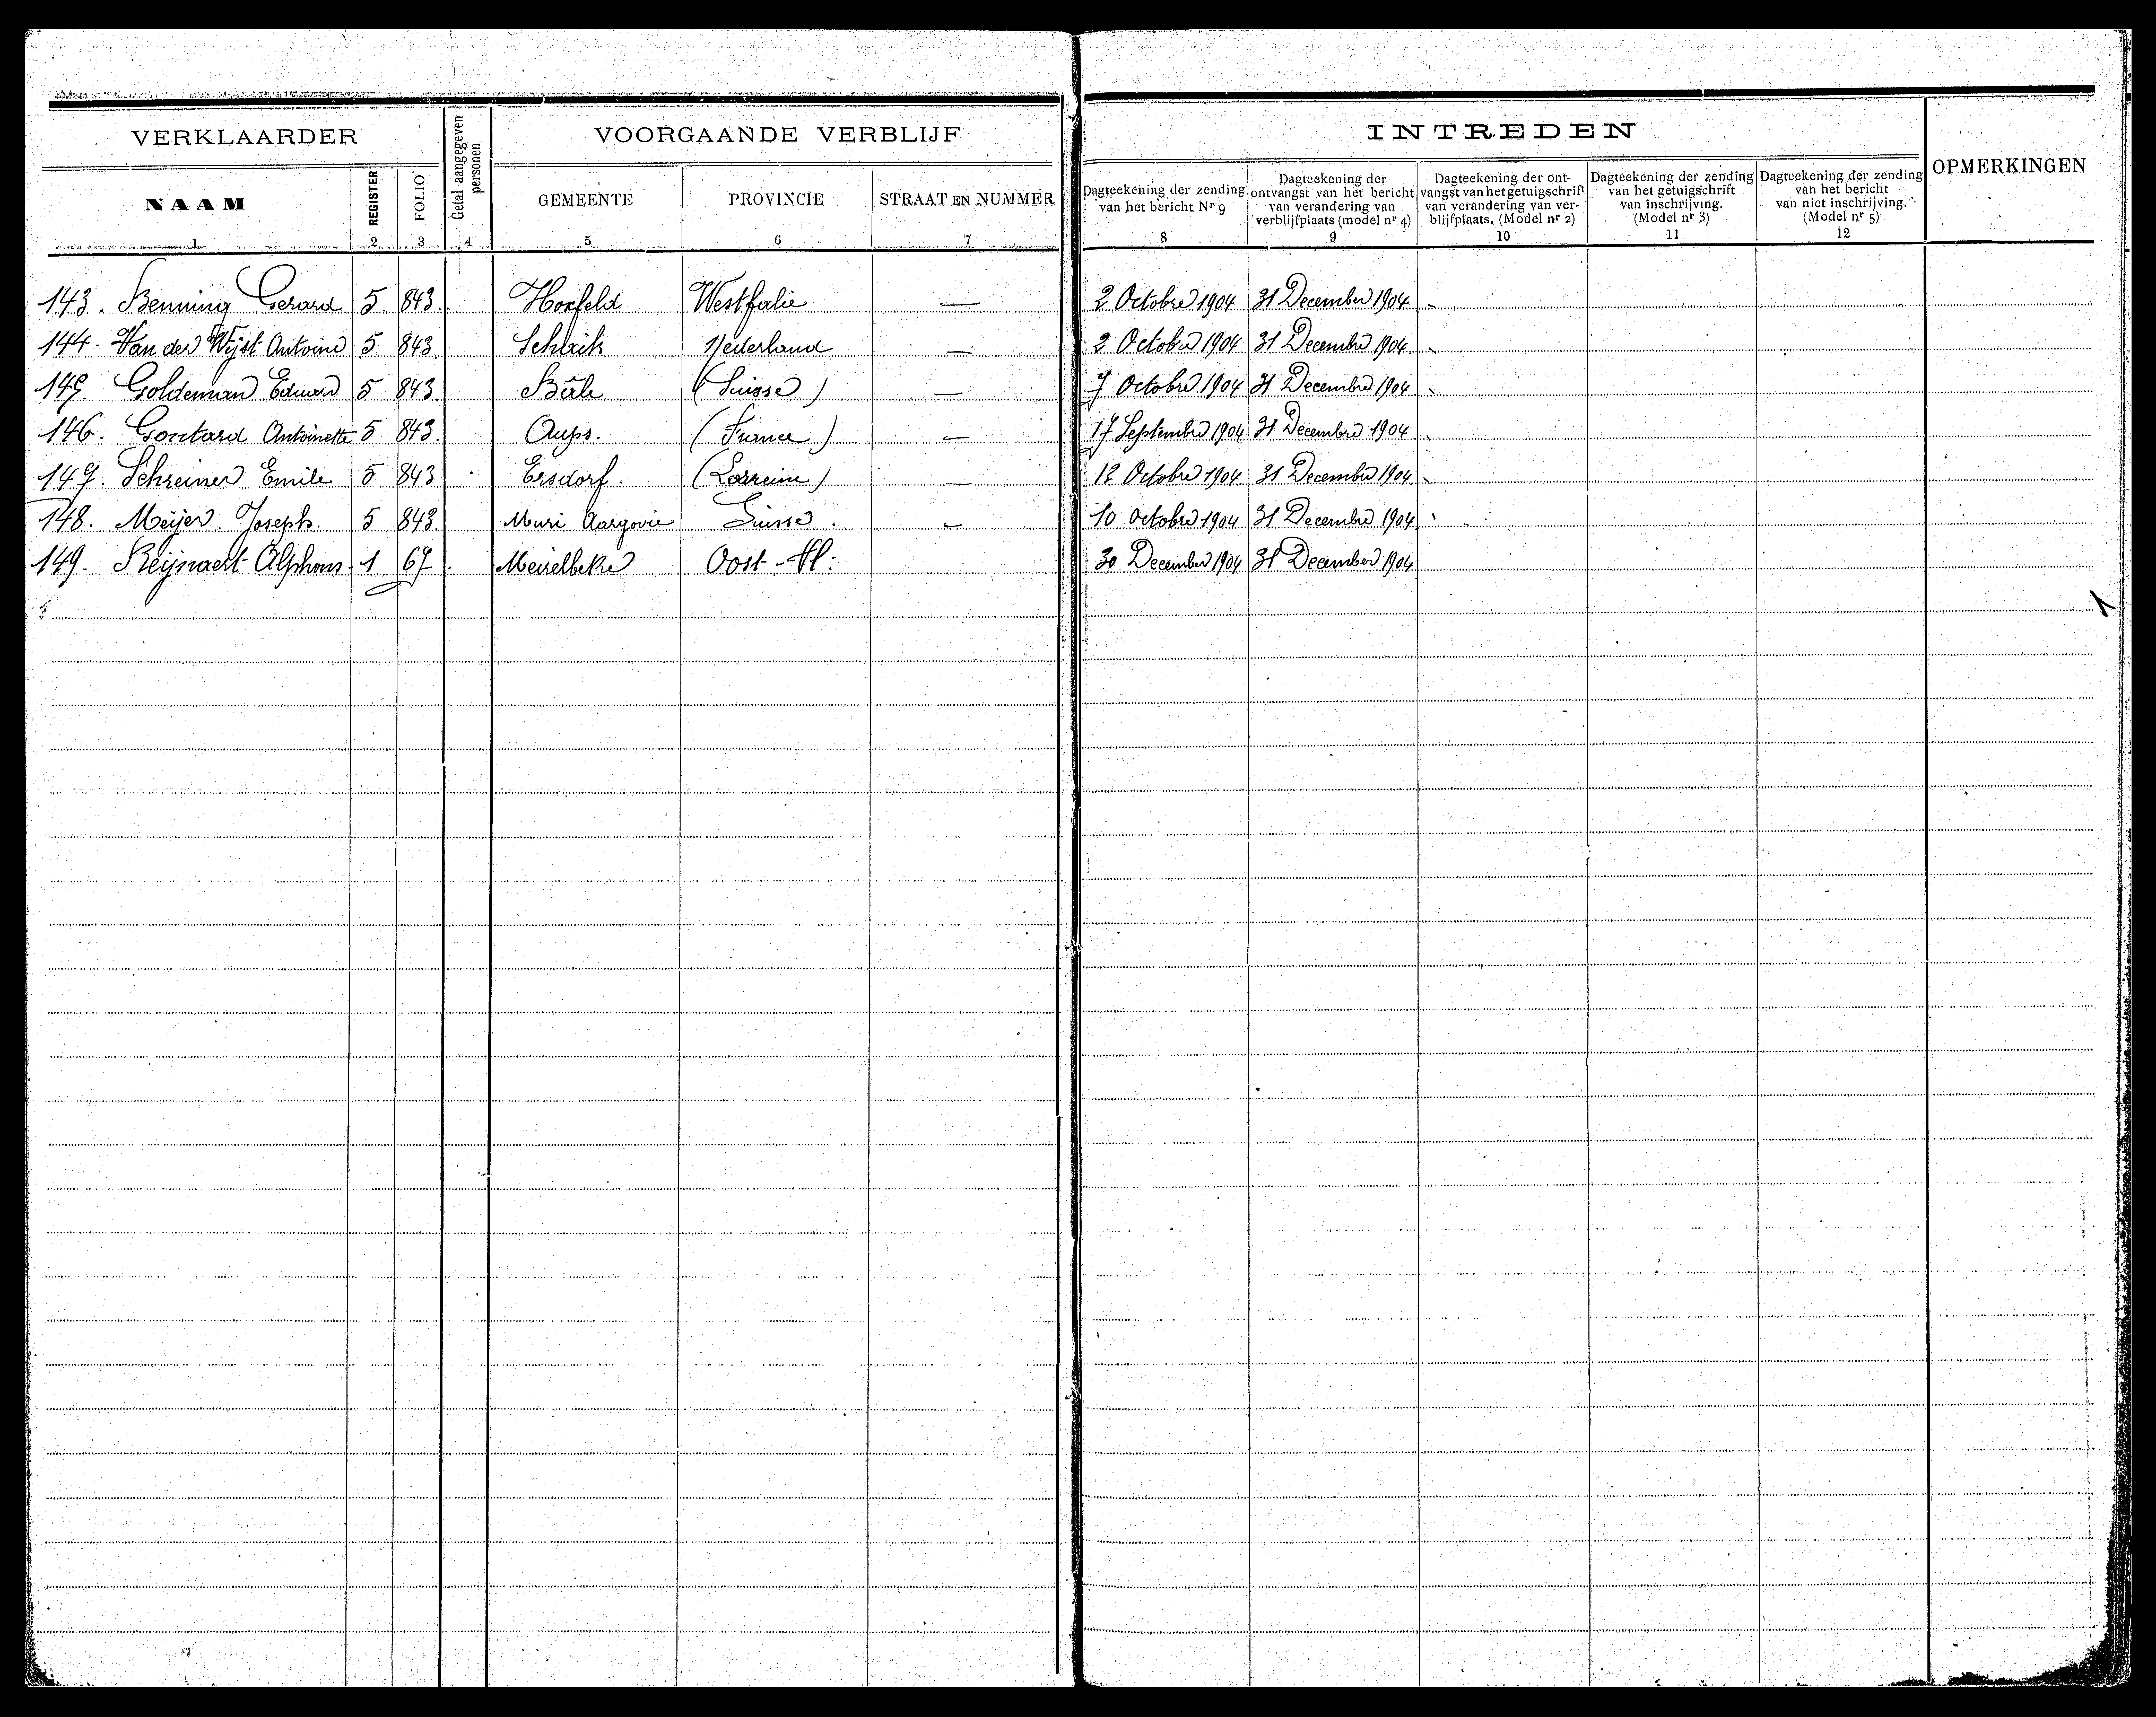 VERKLAARDER
Getal aangegeven personen
VOORGAANDE VERBLIJF
INTREDEN
OPMERKINGEN
NAAM
REGISTER
FOLIO
GEMEENTE
PROVINCIE
STRAAT EN NUMMER
Dagteekening der zending van het bericht Nr 9
Dagteekening der ontvangst van het bericht van verandering van verblijfplaats (model nr 4)
Dagteekening der ont-vangst van het getuigschrift van verandering van ver-blijfplaats. (Model nr 2)
Dagteekening der zending van het getuigschrift van inschrijving. (Model nr 3)
Dagteekening der zending van het bericht van niet inschrijving. (Model nr 5)
1 2 3 4 5 6 7 8 9 10 11 12
143. Benning Gerard 5. 843. Hoxfeld Westfalie — 2 Octobre 1904 31 December 1904
144. Van der Wijst Antoine 5 843 Schaik Nederland — 2 Octobre 1904 31 Decembre 1904.
145. Goldeman Eduard 5 843. Bâle (Suisse) — 7 Octobre 1904 31 Decembre 1904
146. Gontard Antoinette 5 843. Aups. (France) — 17 Septembre 1904 31 Decembre 1904
147. Schreiner Emile 5 843 Ersdorf. (Lorreine) — 12 Octobre 1904 31 Decembre 1904
148. Meijer Joseph. 5 843. Muri Aargovie Suisse. — 10 Octobre 1904 31 Decembre 1904
149. Reijnaert Alphons 1 67 Meirelbeke Oost-Vl: 30 December 1904 31 December 1904
1